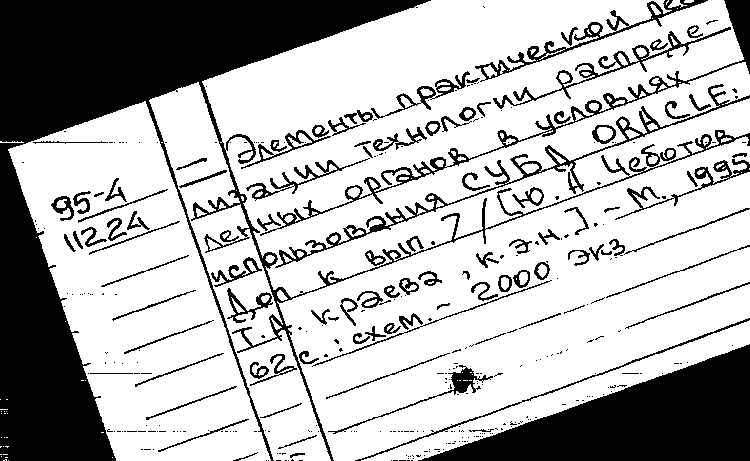 95-4
11224
— Элементы практической реа
лизации технологии распреде-
ленных органов в условиях
использования СУБД ORACLE:
Доп. к вып. 7 / [Ю. А. Чеботов,
Т. А. Краева, к. э. н.]. - М., 1995
62 с. : схем. - 2000 экз